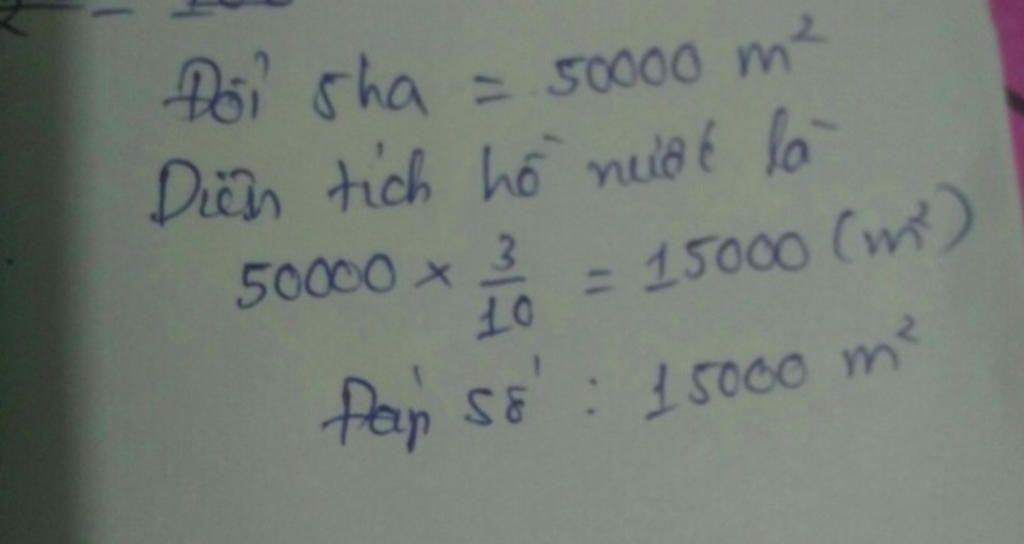 Đổi 5ha = 50000 m²
Diện tích hồ nước là
50000 × 3/10 = 15000 (m²)
Đáp số : 15000 m²